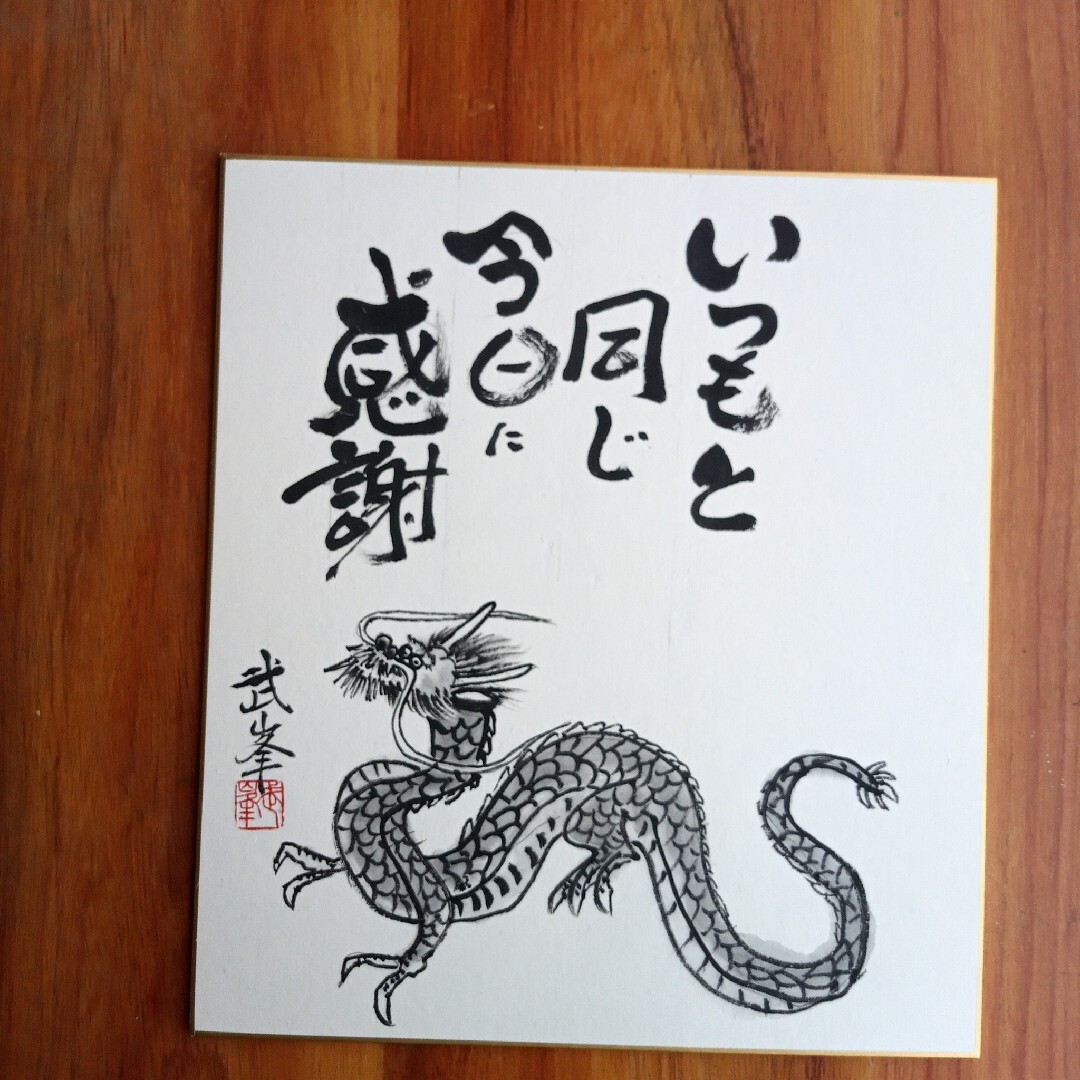 いつもと
同じ
今日に
感謝
武峯